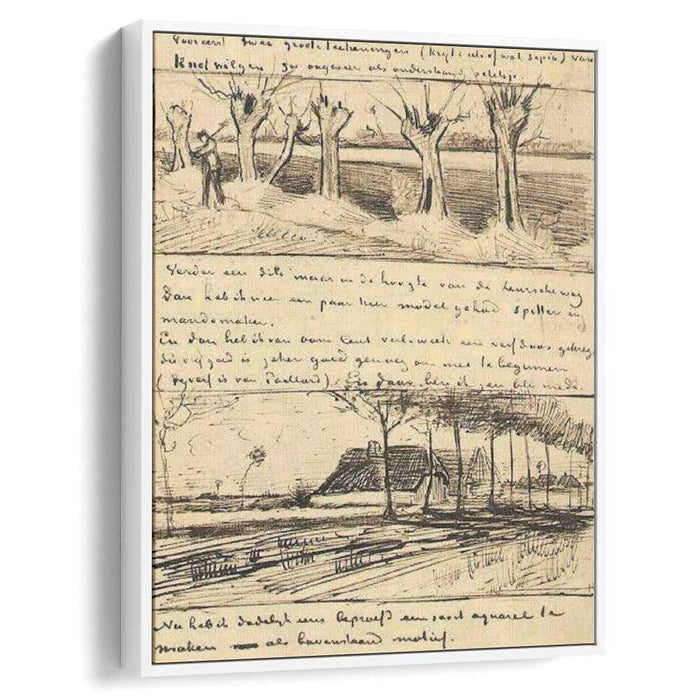 Vooreerst twee groote teekeningen (krijt en of wat sepia) van
Knotwilgen zoo ongeveer als onderstaand schetsje
Verder een dito maar in de hoogte van de Leurscheweg
Dan heb ik weer een paar keer model gehad spitter en
mandemaker.
En dan heb ik van oom Cent verl. week een verfdoos gekregen
die vrij goed is zeker goed genoeg om mee te beginnen
(de verf is van Paillard). En daar ben ik zeer blij mede.
Nu heb ik dadelijk eens beproefd een soort aquarel te
maken als bovenstaand motief.